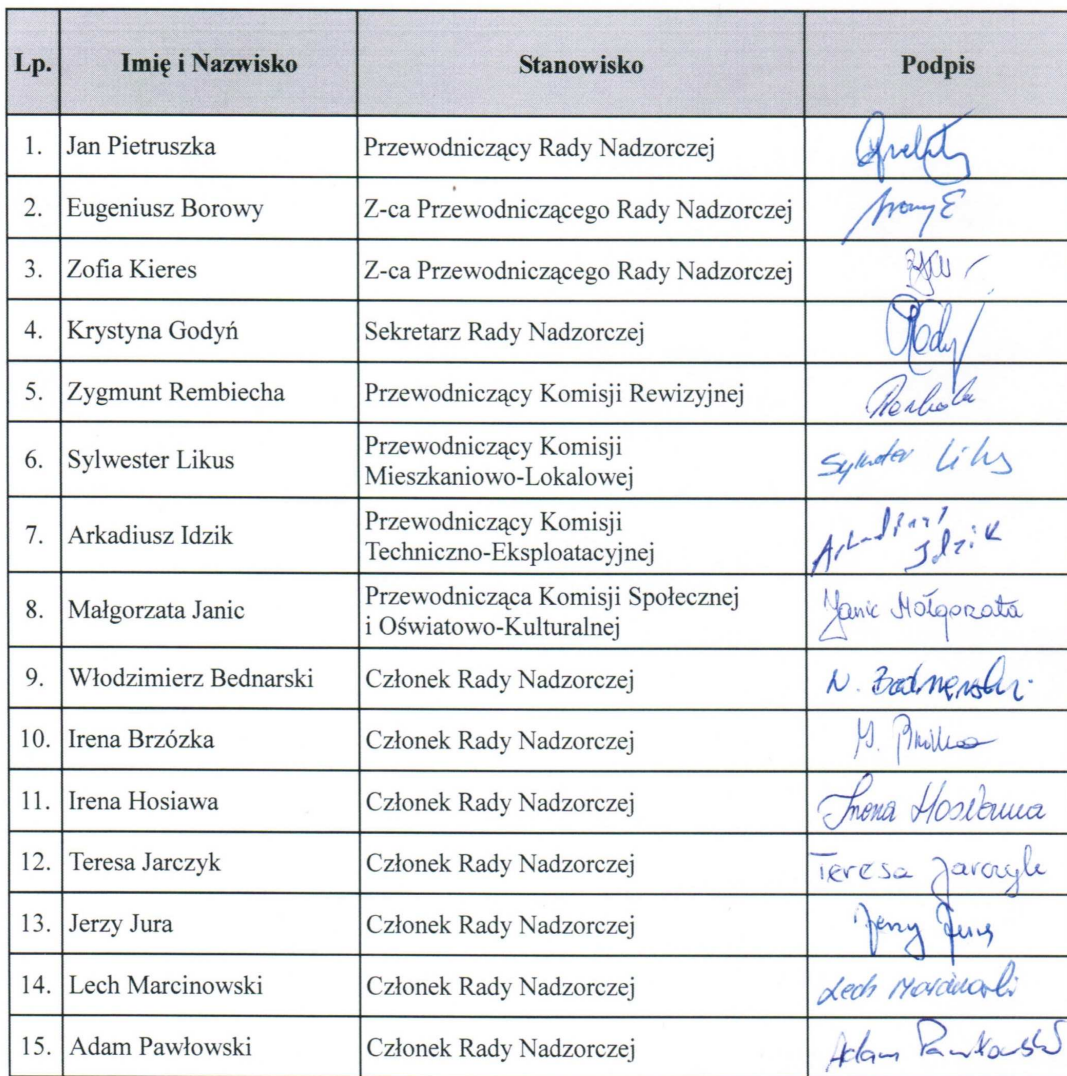 Lp. Imię i Nazwisko Stanowisko Podpis
1. Jan Pietruszka Przewodniczący Rady Nadzorczej
2. Eugeniusz Borowy Z-ca Przewodniczącego Rady Nadzorczej
3. Zofia Kieres Z-ca Przewodniczącego Rady Nadzorczej
4. Krystyna Godyń Sekretarz Rady Nadzorczej
5. Zygmunt Rembiecha Przewodniczący Komisji Rewizyjnej
6. Sylwester Likus Przewodniczący Komisji
Mieszkaniowo-Lokalowej Sylwester Likus
7. Arkadiusz Idzik Przewodniczący Komisji
Techniczno-Eksploatacyjnej Arkadiusz
Idzik
8. Małgorzata Janic Przewodnicząca Komisji Społecznej
i Oświatowo-Kulturalnej Janic Małgorzata
9. Włodzimierz Bednarski Członek Rady Nadzorczej W. Bednarski
10. Irena Brzózka Członek Rady Nadzorczej
11. Irena Hosiawa Członek Rady Nadzorczej Irena Hosiawa
12. Teresa Jarczyk Członek Rady Nadzorczej Teresa Jarczyk
13. Jerzy Jura Członek Rady Nadzorczej Jerzy Jura
14. Lech Marcinowski Członek Rady Nadzorczej Lech Marcinowski
15. Adam Pawłowski Członek Rady Nadzorczej Adam Pawłowski